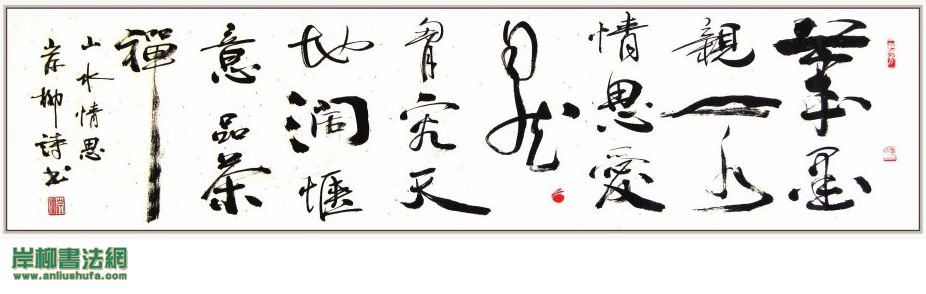 筆墨
親山水
情思愛
自然
胷容天
地濶愜
意品茶
禪
山水情思
岸柳詩书
岸柳書法網
www.anliushufa.com